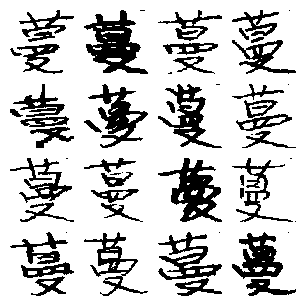 蔓蔓蔓蔓
蔓蔓蔓蔓
蔓蔓蔓蔓
蔓蔓蔓蔓